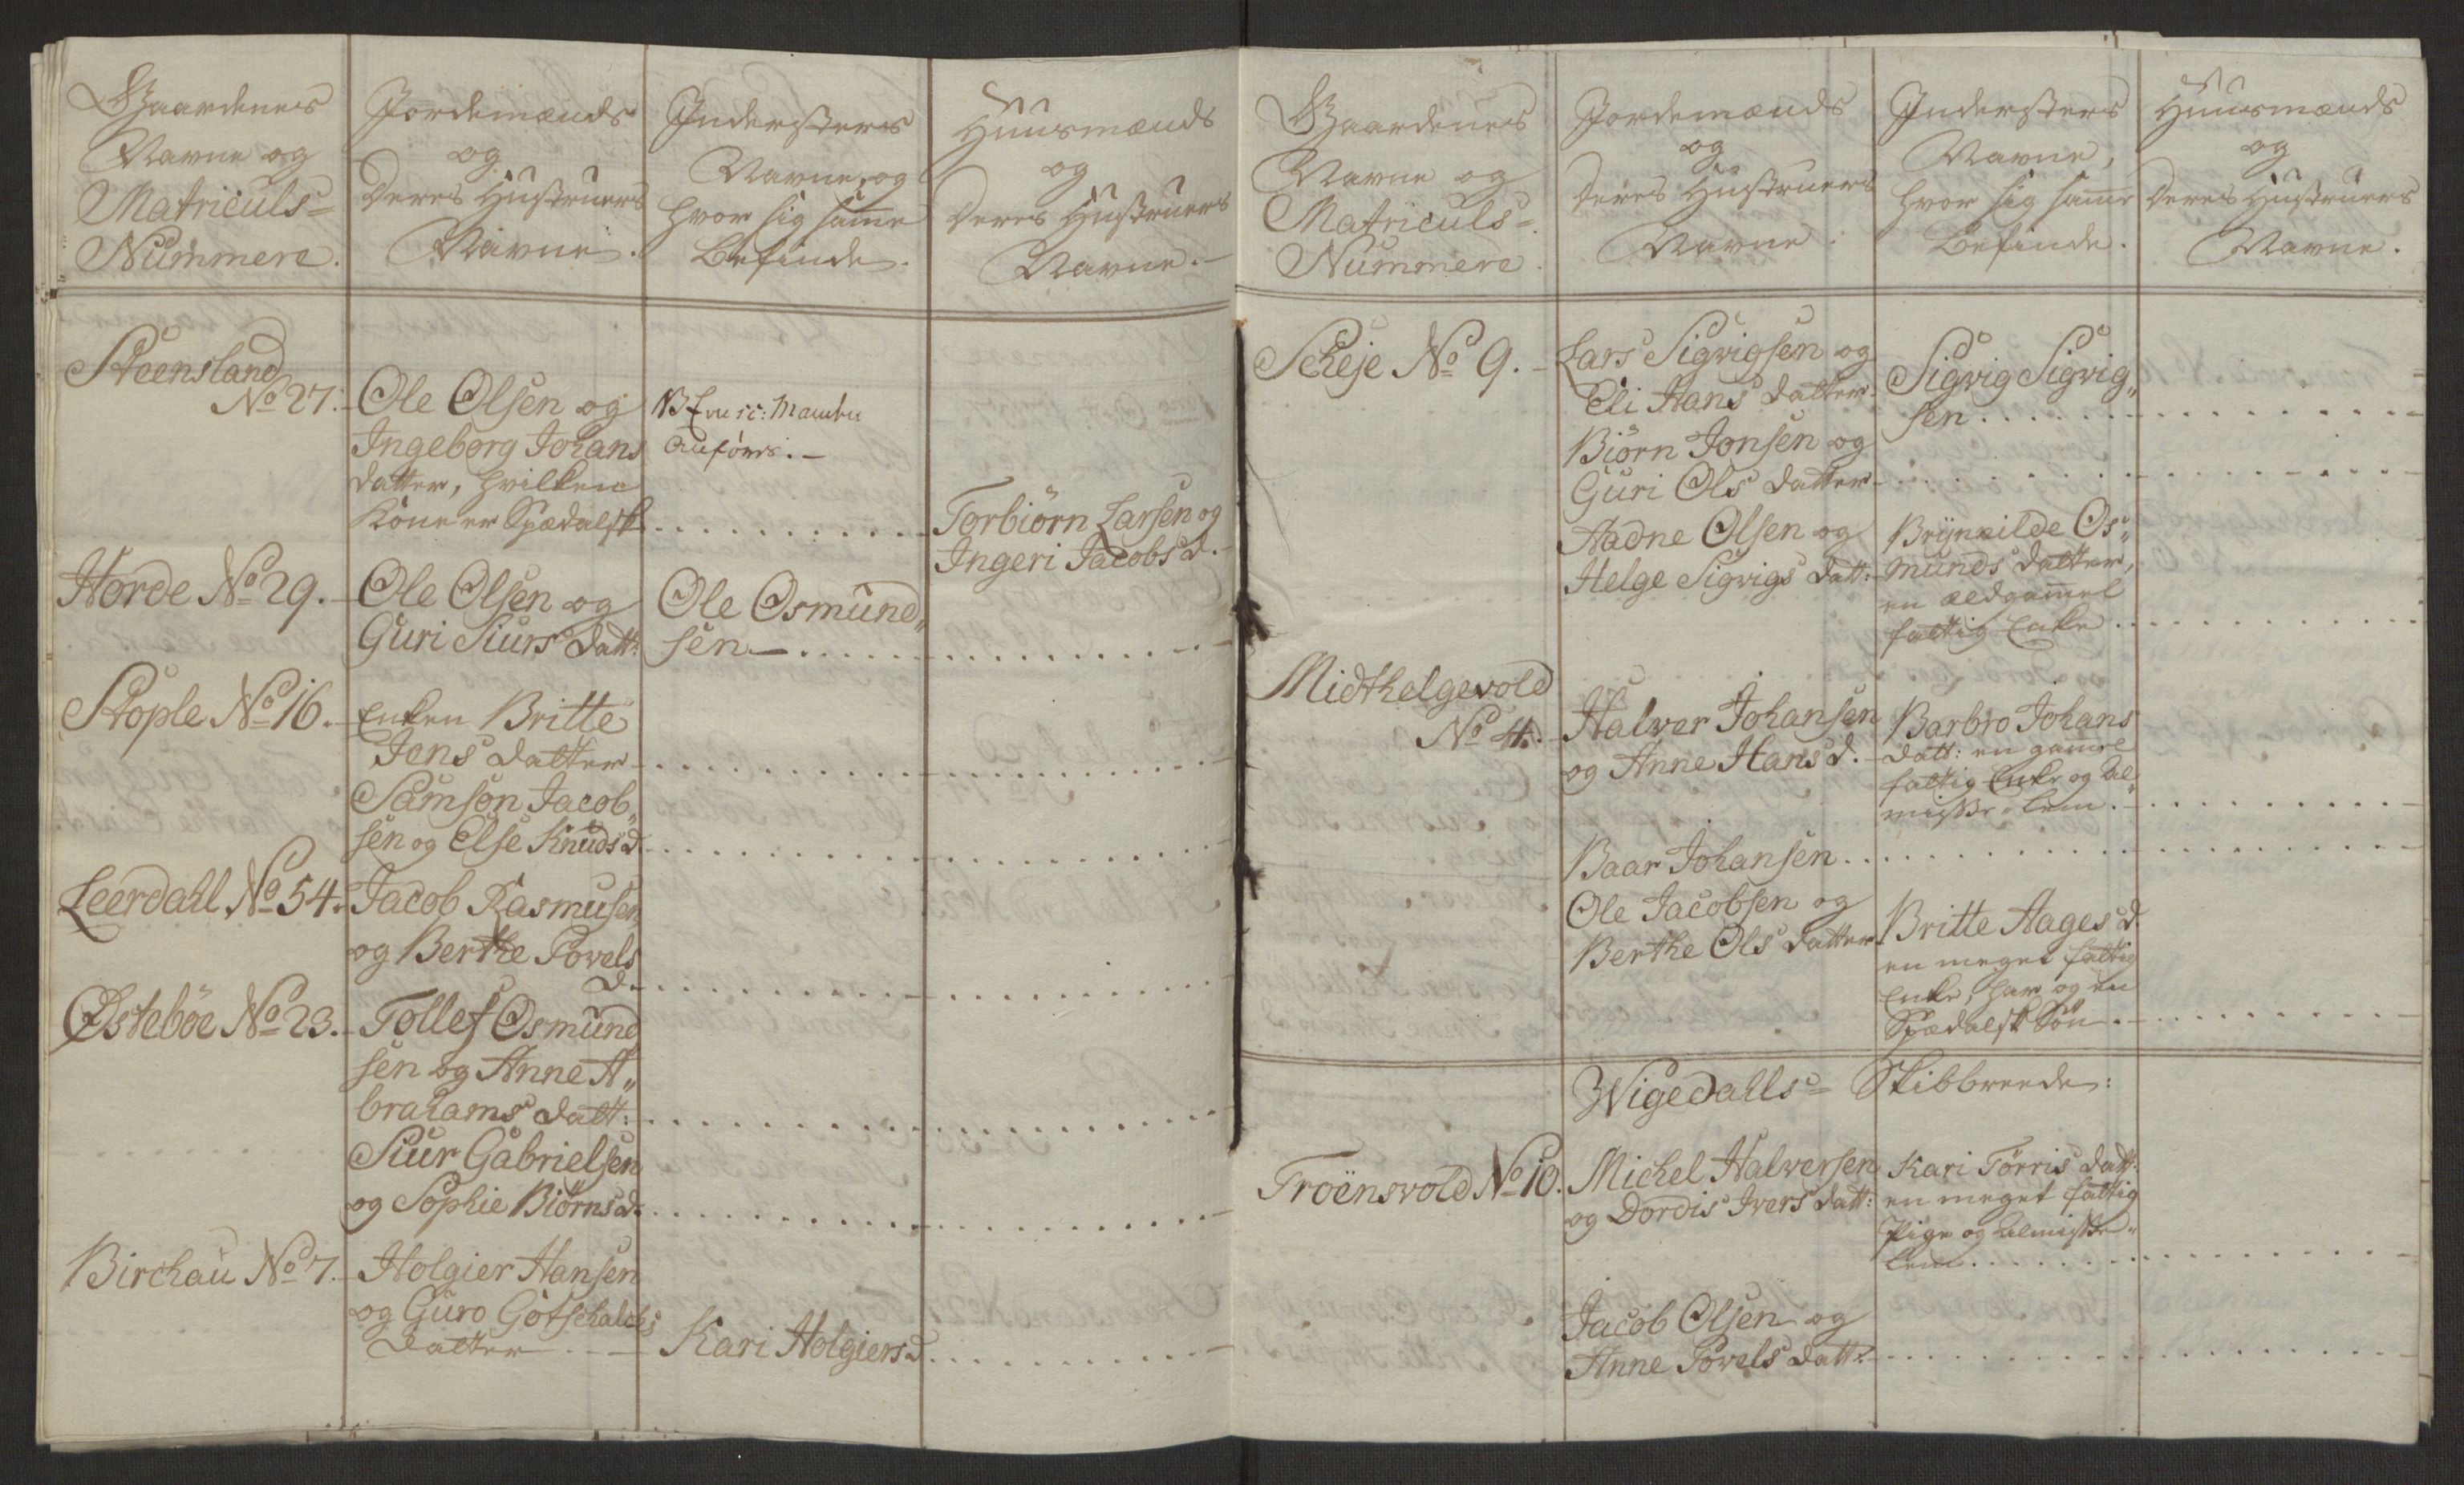 Gaardenes
Navne og
Matriculs=
Nummere.
Jordemænds
og
Deres Hustruers
Navne.
Indersters
Navne, og
hvor sig samme
Befinde.
Huusmænds
og
Deres Hustruers
Navne.
Steensland
No 27.
Ole Olsen og
Ingeborg Johans
datter, hvilken
Kone er Spedalsk
Anføres.
Torbiörn Larsen og
Ingeri Jacobs d.
Horde No 29.
Ole Olsen og
Guri Siurs datt:
Ole Osmund„
sen
Stople No 16.
Enken Britte
Jens datter
Samson Jacob„
sen og Else Knuds d.
Leerdahl No 54.
Jacob Rasmusen
og Berthe Povels
d.
Östeböe No 23.
Tollef Osmund
sen og Anne A„
brahams datt:
Siur Gabrielsen
og Sophie Biörns d.
Birchau No 7.
Holgier Hansen
og Guro Gotschalchs
datter
Kari Holgiers d.
Gaardenes
Navne og
Matriculs=
Nummere.
Jordemænds
og
Deres Hustruers
Navne.
Indersters
Navne,
hvor sig samme
Befinde.
Huusmænds
og
Deres Hustruers
Navne.
Scheje No 9.
Lars Sigvigsen og
Eli Hans datter
Sigvig Sigvig„
sen
Biörn Jonsen og
Guri Ols datter
Aadne Olsen og
Helge Sigvigs datt:
Brÿnnilde Os„
munds datter,
en ældgammel
fattig Enke
Midthelgevold
No 4.
Halver Johansen
og Anne Hans d.
Barbro Johans
datt: en gamel
fattig Enke og Al„
misse=Lem.
Baar Johansen
Ole Jacobsen og
Berthe Ols datter
Britte Aages d.
en meget fattig
Enke, har og en
Spedalsk Sön.
Wigedahls= Skibbreede:
Troënsvold No 10.
Michel Halversen
og Dordis Ivers datt:
Kari Törris datt:
en meget fattig
Pige og Almisse„
lem
Jacob Olsen og
Anne Povels datt: